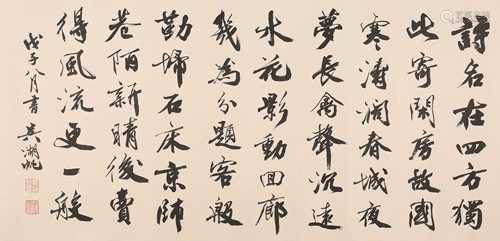 詩名在四方獨
此寄閑房故國
寒濤濶春城夜
夢長禽聲沉遠
水花影動回廊
幾為分題客殷
勤掃石床京師
巷陌新晴後賣
得風流更一般
戊子八月書 吳湖帆